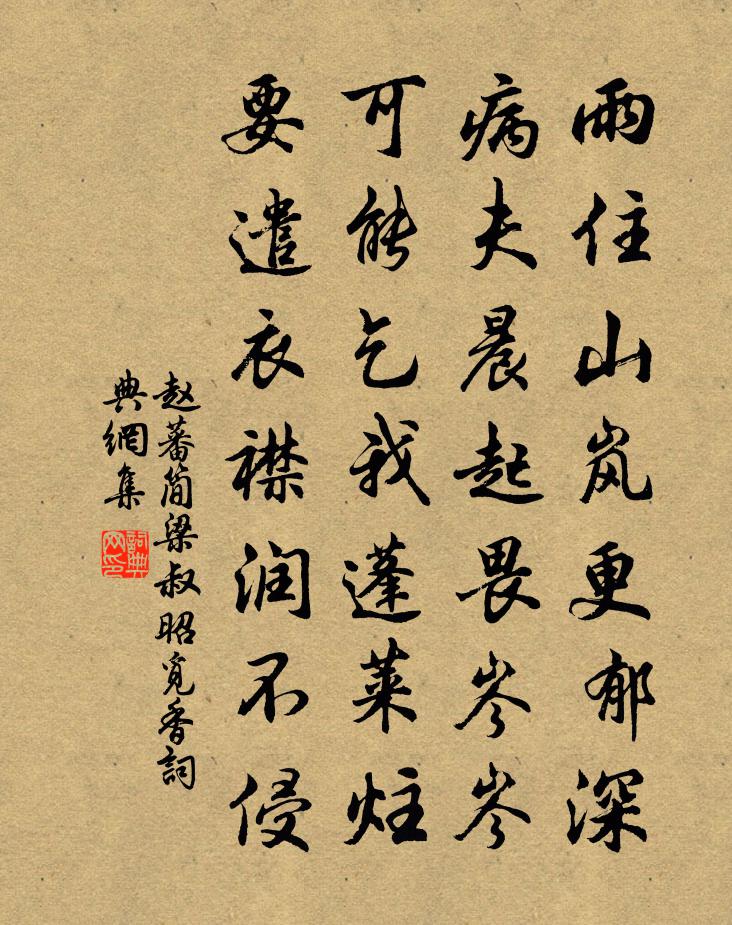 雨住山岚更郁深
病夫晨起畏岑岑
可能乞我蓬莱炷
要遣衣襟润不侵
赵蕃简梁叔昭觅香詞
典網集
詞典
网印